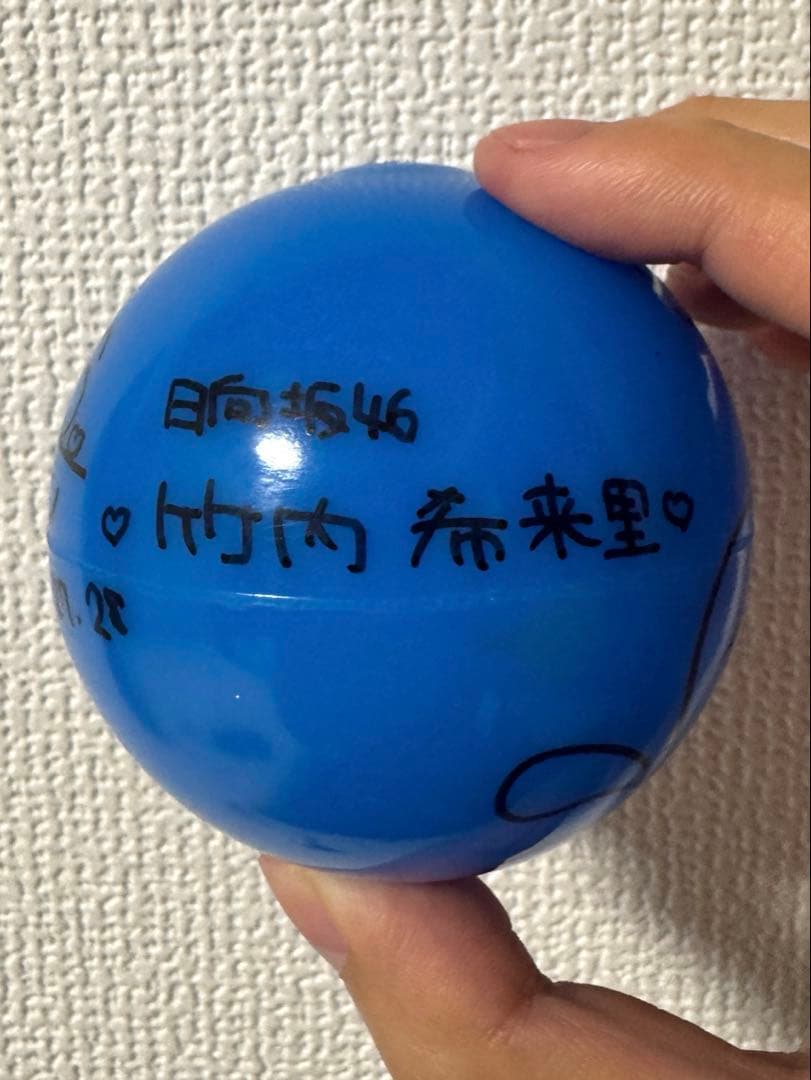 日向坂46
♡竹内 希来里♡
7.28